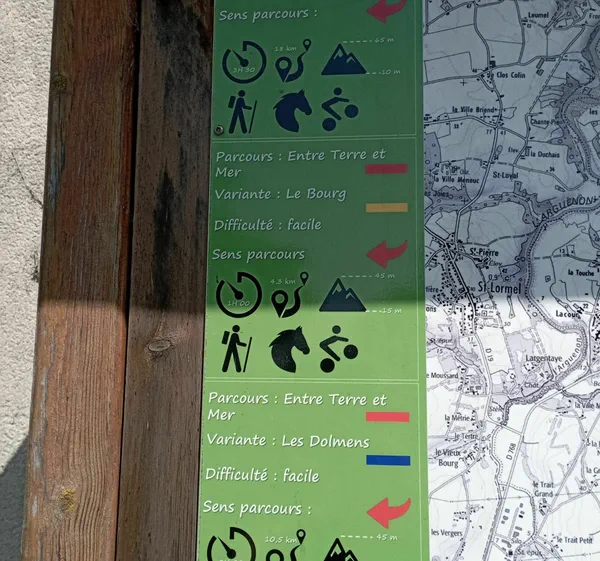 Sens parcours :
3H 30
13 km
65 m
10 m
Parcours : Entre Terre et
Mer
Variante : Le Bourg
Difficulté : facile
Sens parcours
1H 00
4.3 km
45 m
15 m
Parcours : Entre Terre et
Mer
Variante : Les Dolmens
Difficulté : facile
Sens parcours :
10.5 km
45 m
Clos Colin
la Ville Briend
la Duchais
St-Loval
la Ville Meneuc
ARGUENON
St-Pierre
la Touche
St-Lormel
Lacour
D 19
Largentaye
le Moussard
Chât.
l'Arguenon
la Métrie
Stèle
le Tertre
D 768
le Vieux
Bourg
le Trait
Grand
les Vergers
le Trait Petit